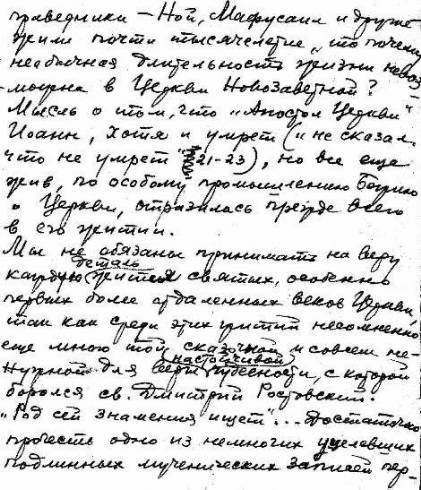 праведники — Ной, Мафусаил и другие
жили почти тысячелетие, то почему
необычная длительность жизни невоз-
можна в Церкви Новозаветной?
Мысль о том, что "Апостол Церкви"
Иоанн, хотя и умрет ("не сказал,
что не умрет" 21-23), но все еще
жив, по особому промышлению Божию
о Церкви, отразилась прежде всего
в его житии.
Мы не обязаны принимать на веру
каждую деталь житий святых, особенно
первых более отдаленных веков Церкви,
так как среди этих житий несомненно
еще много той сказочной и совсем не-
нужной для веры настойчивой чудесности, с которой
боролся св. Дмитрий Ростовский.
"Род сей знамения ищет"... Достаточно
прочесть одно из немногих уцелевших
подлинных мученических записей пер-